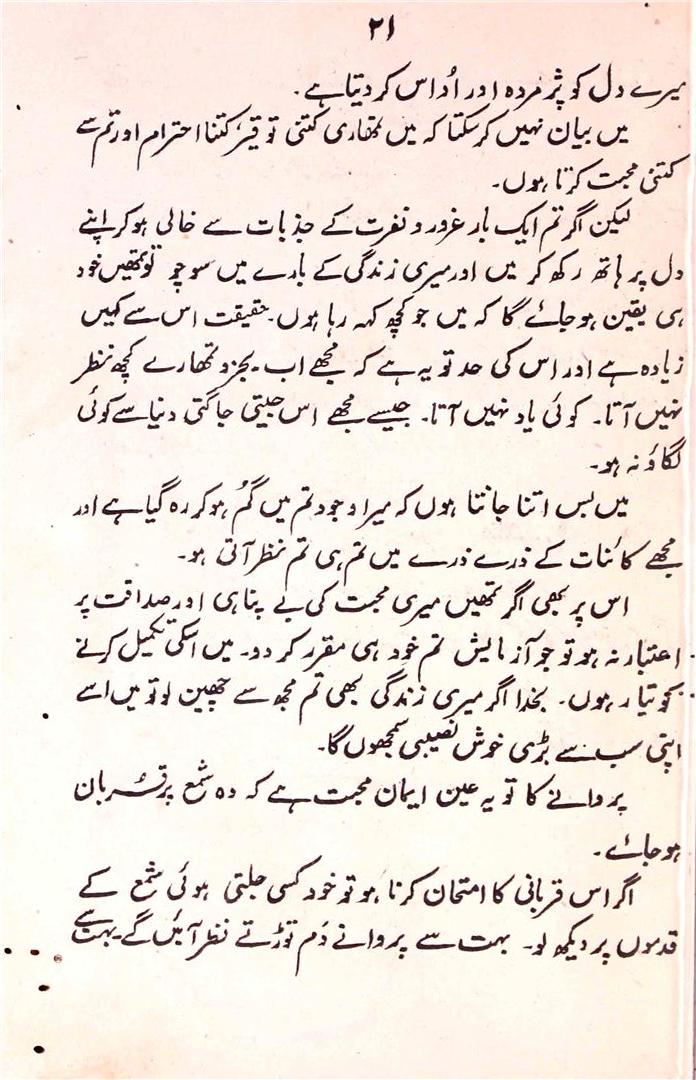 ۲۱
میرے دل کو پژمردہ اور اُداس کر دیتا ہے۔
میں بیان نہیں کر سکتا کہ میں تمھاری کتنی توقیر، کتنا احترام اور تم سے
کتنی محبت کرتا ہوں۔
لیکن اگر تم ایک بار غرور و نفرت کے جذبات سے خالی ہو کر اپنے
دل پر ہاتھ رکھ کر میں اور میری زندگی کے بارے میں سوچو تو تمھیں خود
ہی یقین ہو جائے گا کہ میں جو کچھ کہہ رہا ہوں۔ حقیقت اس سے کہیں
زیادہ ہے اور اس کی حد تو یہ ہے کہ مجھے اب بجز تمھارے کچھ نظر
نہیں آتا۔ کوئی یاد نہیں آتا۔ جیسے مجھے اس جیتی جاگتی دنیا سے کوئی
لگاؤ نہ ہو۔
میں بس اتنا جانتا ہوں کہ میرا وجود تم میں گُم ہو کر رہ گیا ہے اور
مجھے کائنات کے ذرے ذرے میں تم ہی تم نظر آتی ہو۔
اس پر بھی اگر تمھیں میری محبت کی بے پناہی اور صداقت پر
اعتبار نہ ہو تو جو آزمایش تم خود ہی مقرر کر دو۔ میں اسکی تکمیل کرنے
کو تیار ہوں۔ بخدا اگر میری زندگی بھی تم مجھ سے چھین لو تو میں اسے
اپنی سب سے بڑی خوش نصیبی سمجھوں گا۔
پروانے کا تو یہ عین ایمان محبت ہے کہ وہ شمع پر قربان
ہو جائے۔
اگر اس قربانی کا امتحان کرنا ہو تو خود کسی جلتی ہوئی شمع کے
قدموں پر دیکھ لو۔ بہت سے پروانے دَم توڑتے نظر آئیں گے۔ بہت سے